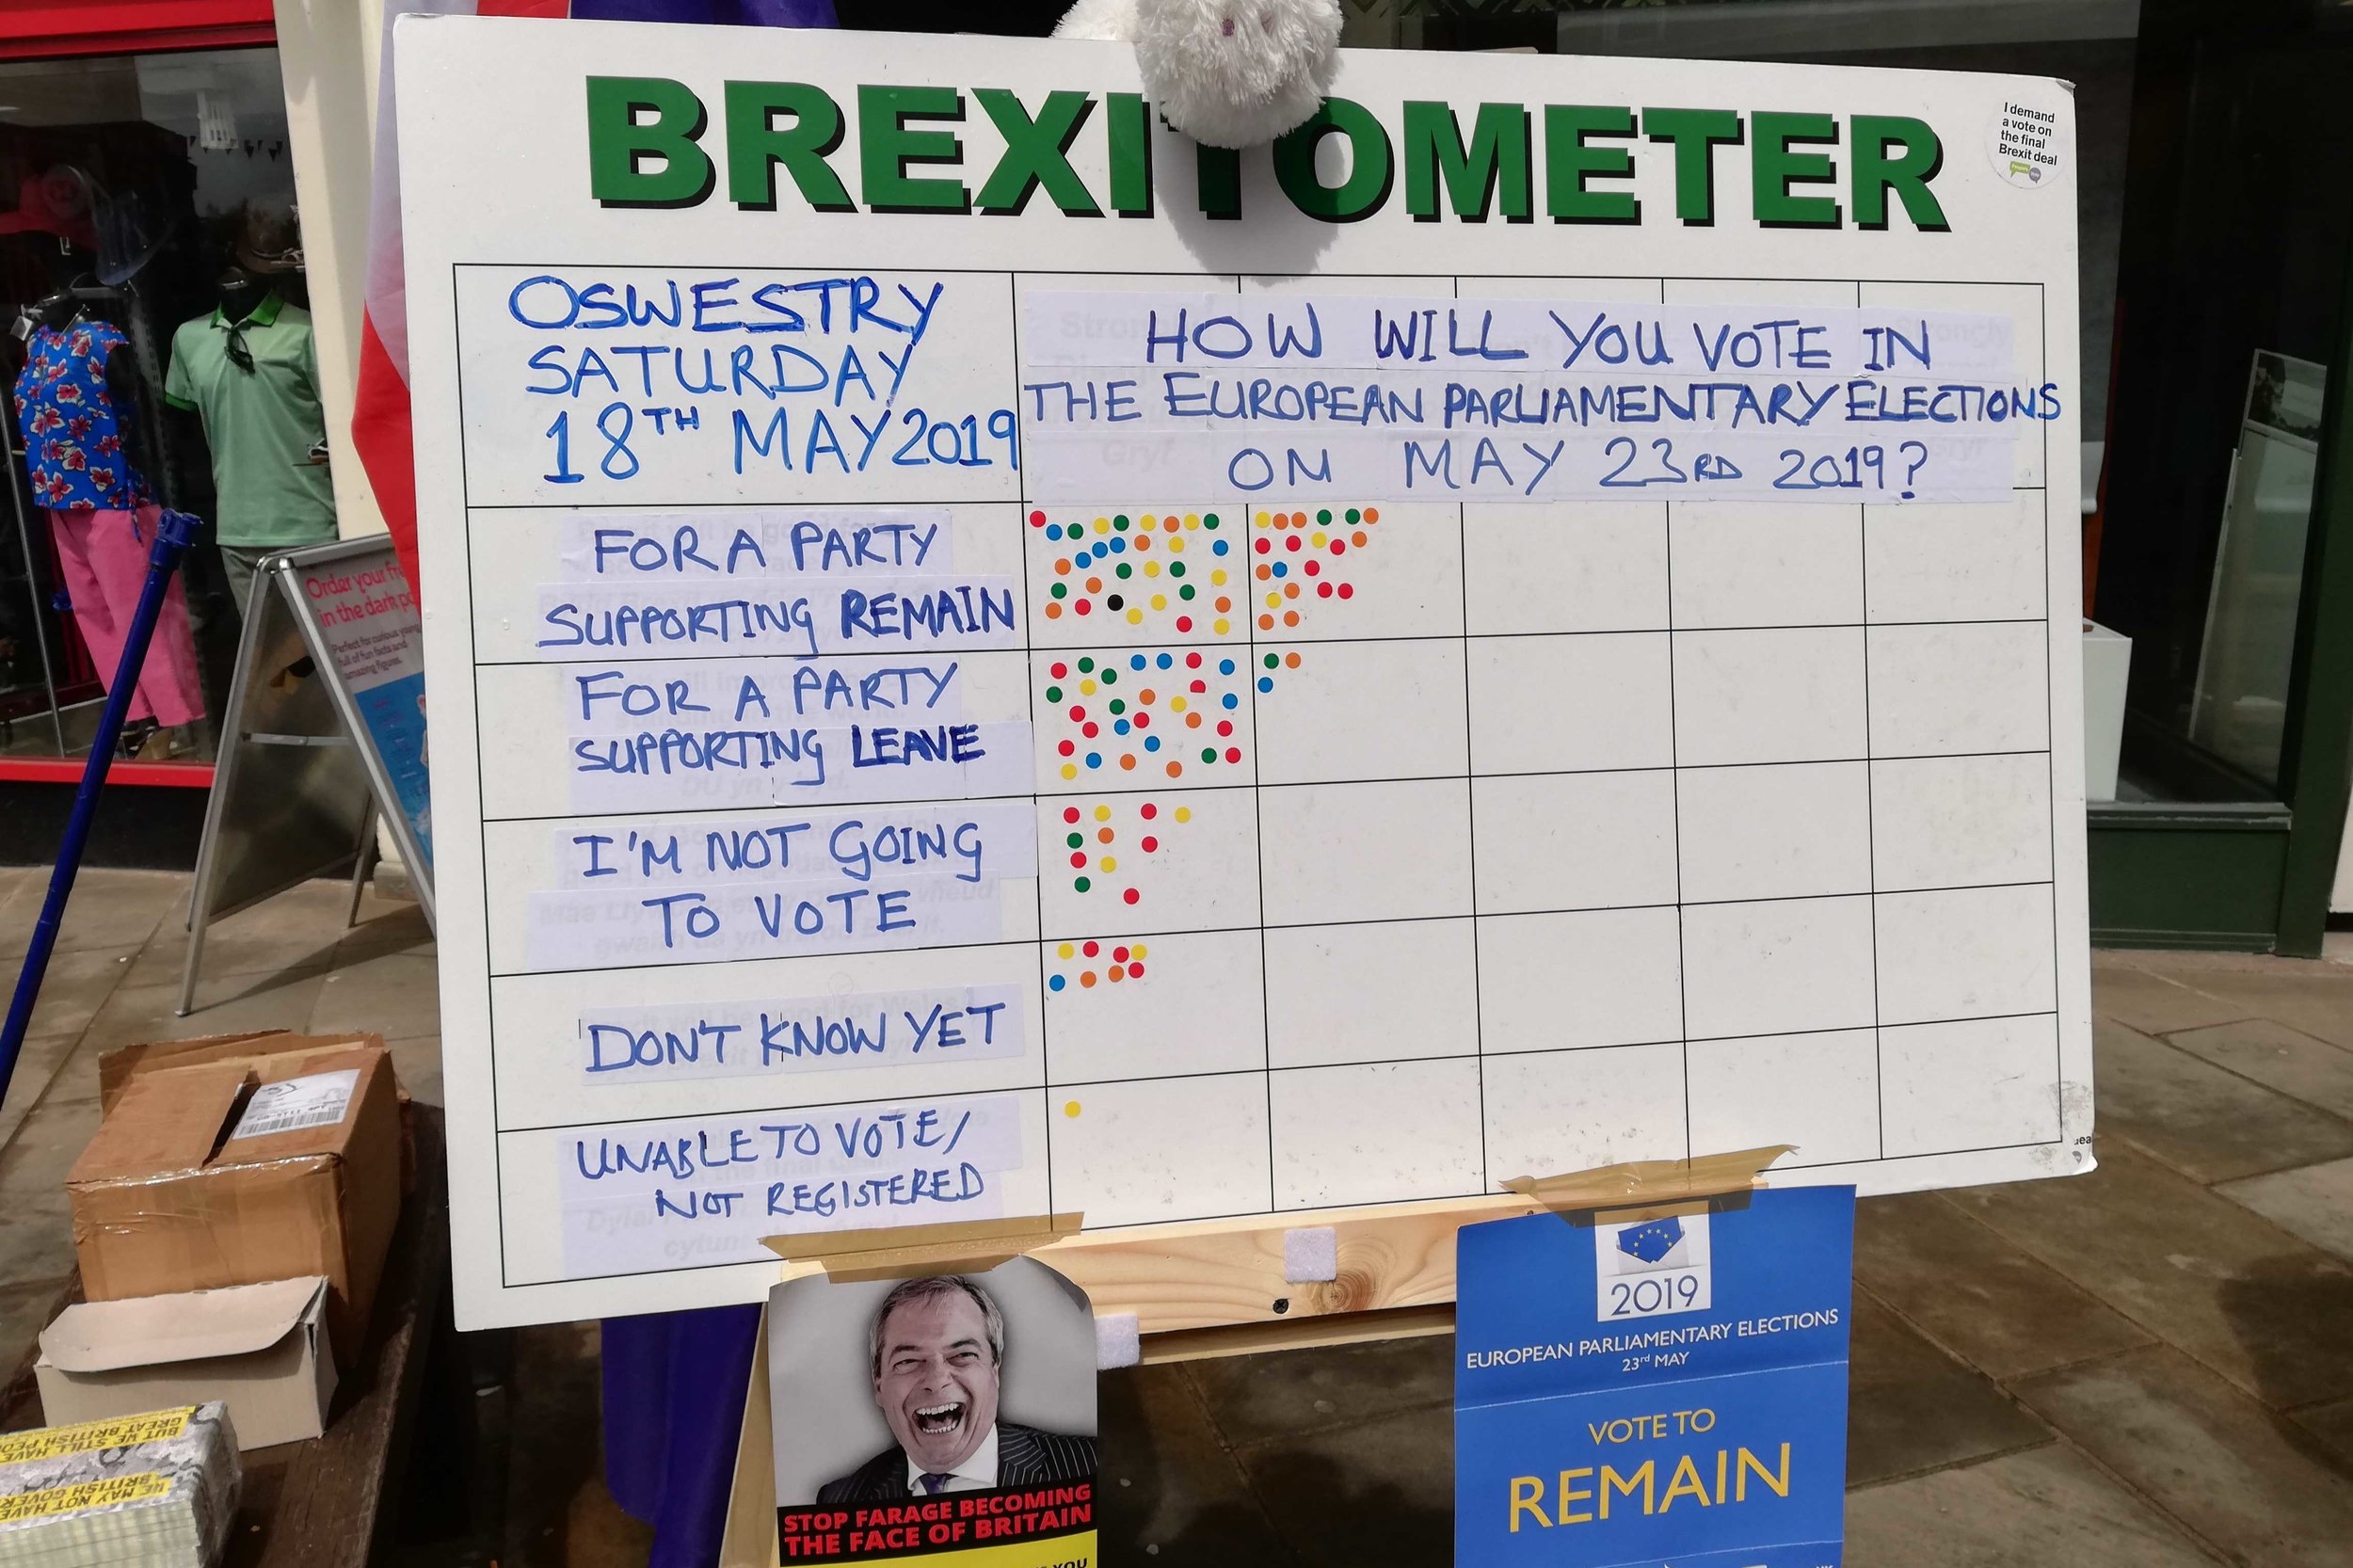 BREXITOMETER
I demand
a vote on
the final
Brexit deal
OSWESTRY
SATURDAY
18TH MAY 2019
HOW WILL YOU VOTE IN
THE EUROPEAN PARLIAMENTARY ELECTIONS
ON MAY 23RD 2019?
FOR A PARTY
SUPPORTING REMAIN
FOR A PARTY
SUPPORTING LEAVE
I'M NOT GOING
TO VOTE
DON'T KNOW YET
UNABLE TO VOTE/
NOT REGISTERED
Order your
in the dark
Perfect for curious young
full of fun facts and
amazing figures.
BUT WE STILL HAVE
GREAT BRITISH
WE MAY NOT HAVE
BRITISH
STOP FARAGE BECOMING
THE FACE OF BRITAIN
YOU
2019
EUROPEAN PARLIAMENTARY ELECTIONS
23rd MAY
VOTE TO
REMAIN